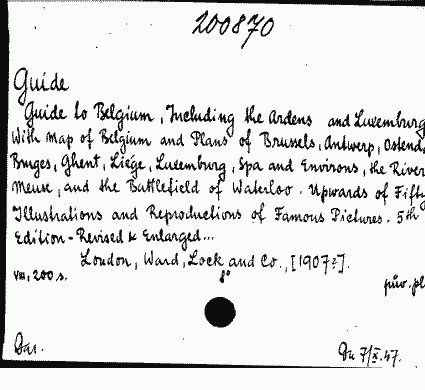 200870
Guide
Guide to Belgium, Including the Ardens and Luxemburg
With Map of Belgium and Plans of Brussels, Antwerp, Ostend,
Bruges, Ghent, Liége, Luxemburg, Spa and Environs, the River
Meuse, and the Battlefield of Waterloo. Upwards of Fifty
Illustrations and Reproductions of Famous Pictures. 5th
Edition - Revised & Enlarged...
London, Ward, Lock and Co., [1907?].
VIII, 200 s. 8° pův. pl
Dar. Du 7/X.47.